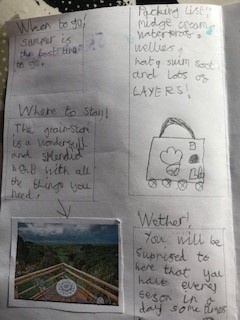 When to go!
Summer is
the best time
to go.
Where to Stay!
The grain store
is a wonderfull
and splendid
with all
the things you
need!
Packing list!
midge cream
wellies,
hat, swim soot
and lots of
LAYERS!
Wether!
You will be
suprised to
here that you
have every
season in a
day some times